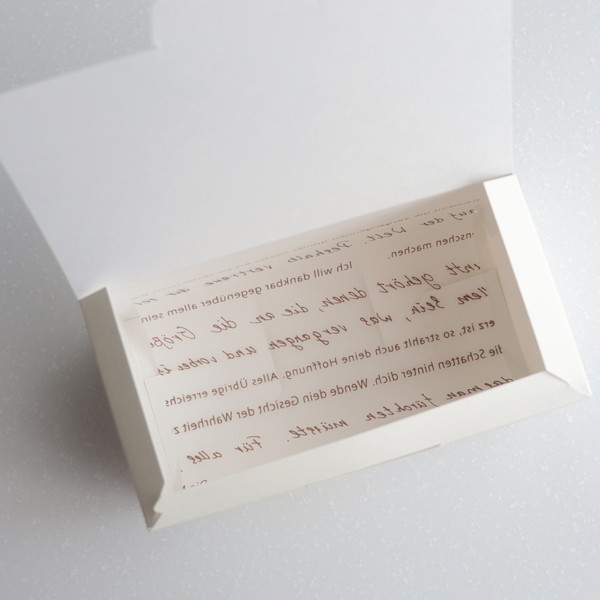 auf der Welt. Deshalb vertraue der
nschen machen. Ich will dankbar gegenüber allem sein
nft gehört denen, die an die Größe
llem sein, was vergangen und vorbei is
erz ist, so strahlt auch deine Hoffnung. Alles Übrige erreichs
die Schatten hinter dich. Wende dein Gesicht der Wahrheit z
das man fürchten müsste. Für alles,